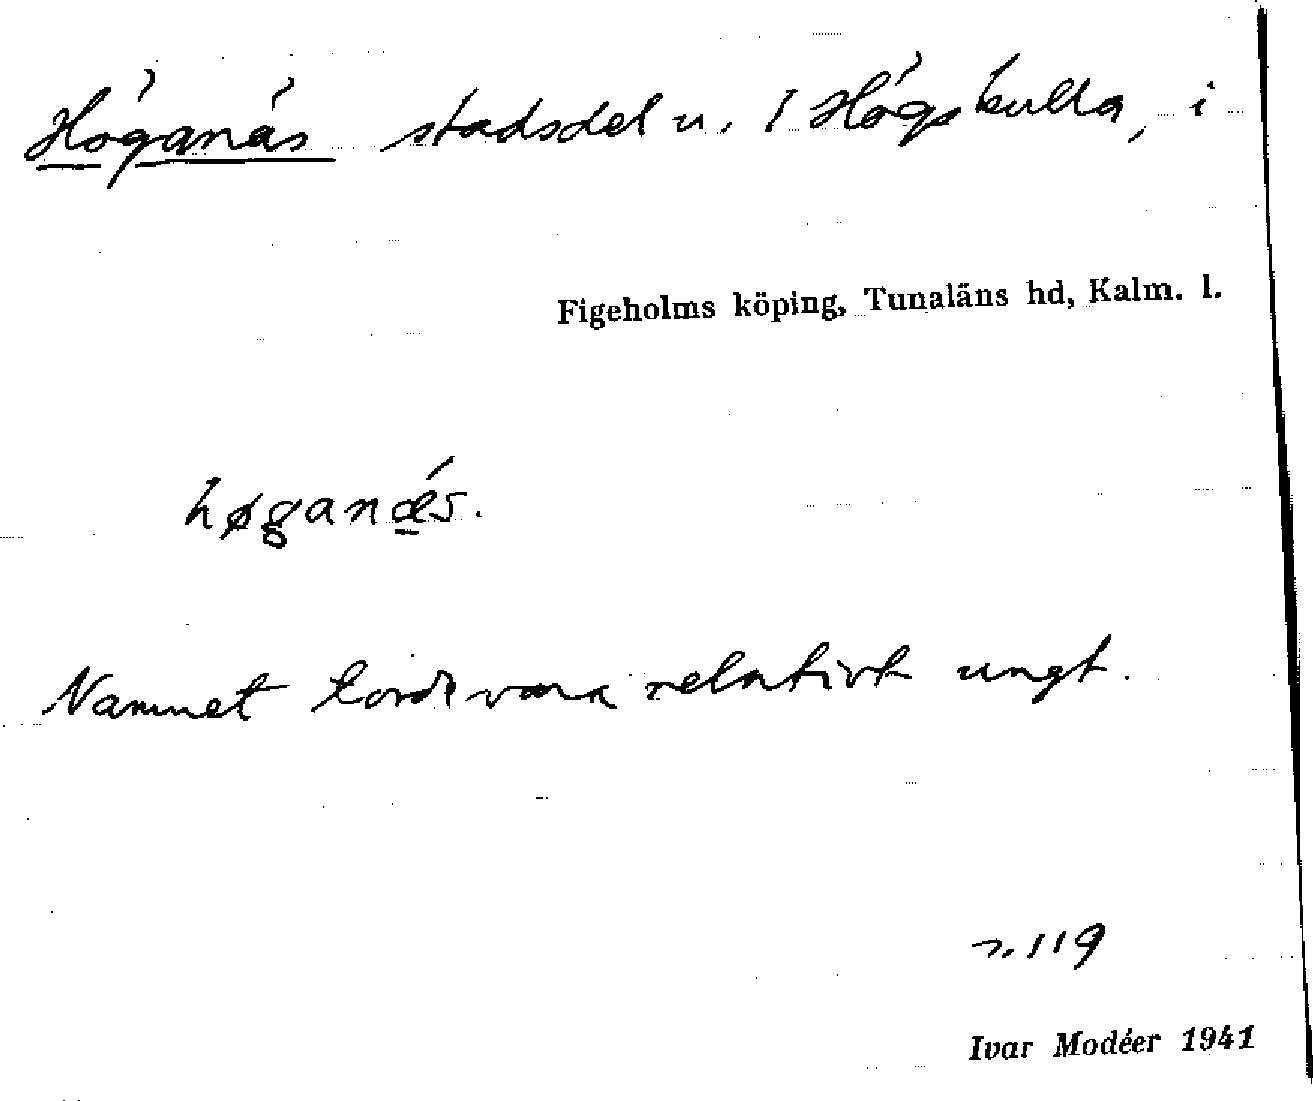 Höganäs stadsdel u. 1 Högskulla, i
Figeholms köping, Tunaläns hd, Kalm. l.
høganǽs.
Namnet torde vara relativt ungt.
n. 119
Ivar Modéer 1941